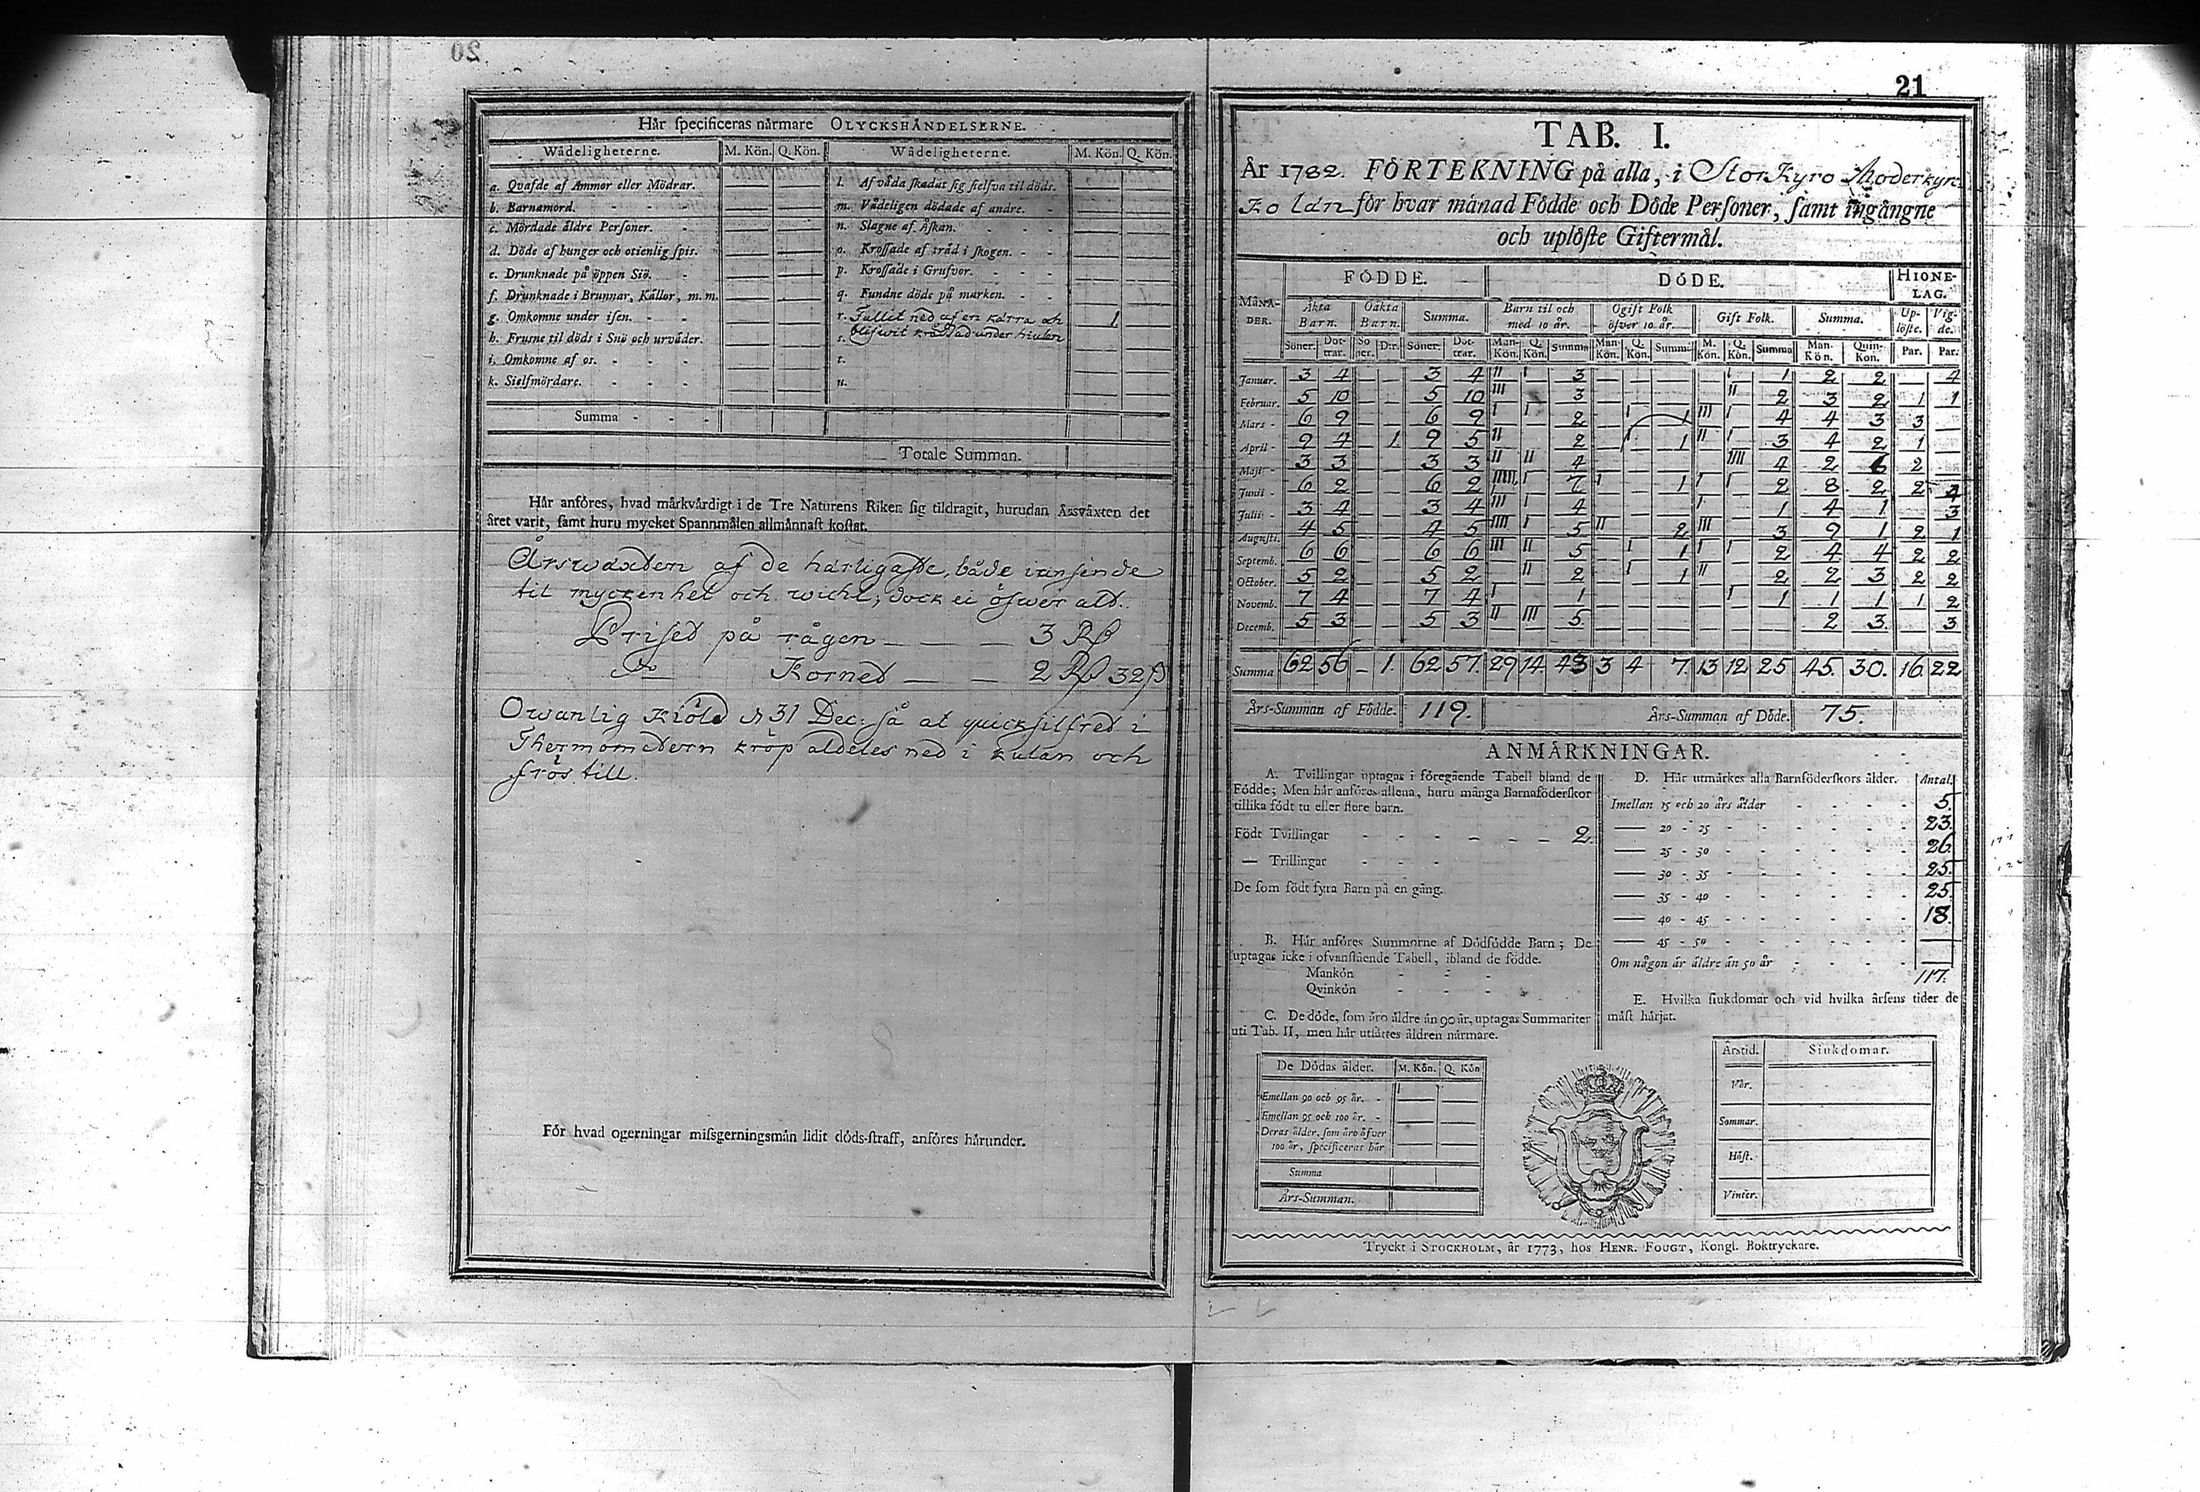 Här specificeras närmare OLYCKSHÄNDELSERNE.
Wådeligheterne. M. Kön. Q. Kön. Wådeligheterne. M. Kön. Q. Kön.
a. Qvafde af Ammor eller Mödrar. — — l. Af våda skadat sig sielfva til döds. — —
b. Barnamord. - - - — — m. Vådeligen dödade af andre. - — —
c. Mördade äldre Personer. - — — n. Slagne af Åskan. - - - — —
d. Döde af hunger och otienlig spis. — — o. Krossade af träd i skogen. - - — —
e. Drunknade på öppen Siö. - — — p. Krossade i Grufvor. - — —
f. Drunknade i Brunnar, Källor, m. m. — — q. Fundne döde på marken. - - — —
g. Omkomne under isen. - - — — r. Fallit ned af en kärra och — 1
h. Frusne til döds i Snö och urväder. — — s. blifwit krossad under hiulen
i. Omkomne af os. - - - — — t. — —
k. Sielfmördare. - - - — — u. — —
Summa - - -
Totale Summan.
Här anföres, hvad märkvärdigt i de Tre Naturens Riken sig tildragit, hurudan Årsväxten det
året varit, samt huru mycket Spannmålen allmännast kostat.
Årswäxten af de härligaste, både i anseende
til myckenhet och wicht; dock ei öfwer alt.
Priset på rågen — — — 3 Rß
Do Kornet — — 2 Rß 32 ß
Owanlig kiöld d 31 Dec: så at quicksilfret i
Thermometern kröp aldeles ned i kulan och
frös till.
För hvad ogerningar missgerningsmän lidit döds-straff, anföres härunder.
21
TAB. I.
År 1782. FÖRTEKNING på alla, i StorKyro Moderkyr-
ko län för hvar månad Födde och Döde Personer, samt ingångne
och uplöste Giftermål.
MÅNA-DER. FÖDDE. DÖDE. HIONE-LAG.
Äkta Barn. Oäkta Barn. Summa. Barn til och med 10 år. Ogift Folk öfver 10 år. Gift Folk. Summa. Up-löste. Vig-de.
Söner. Dot-trar. So ner. D:r. Söner. Dot-trar. Man-Kön. Q. Kön. Summa Man-Kön. Q. Kön. Summ: M. Kön. Q. Kön. Summa Man-Kön. Quin-Kon. Par. Par.
Januar. 3 4 — — 3 4 II I 3 — — — — I 1 2 2 — 4
Februar. 5 10 — — 5 10 III — 3 — — — — II 2 3 2 1 1
Mars - 6 9 — — 6 9 I I 2 — I 1 III I 4 4 3 3 —
April - 9 4 — 1. 9 5 II — 2 — I 1 II I 3 4 2 1 —
Maji - 3 3 — — 3 3 II II 4 — — — — IIII 4 2 6 2 —
Junii - 6 2 — — 6 2 7 I — 1 I I 2 8 2 2 4
Julii - 3 4 — — 3 4 III I 4 — — — I — 1 4 1 — 3
Augusti. 4 5 — — 4 5 IIII I 5 II — 2 III — 3 9 1 2 1
Septemb. 6 6 — — 6 6 III II 5 — I 1 I I 2 4 4 2 2
October. 5 2 — — 5 2 — II 2 — I 1 II — 2 2 3 2 2
Novemb. 7 4 — — 7 4 I — 1 — — — — I 1 1 1 1 2
Decemb. 5 3 — — 5 3 II III 5 — — — — — — 2 3 — 3
Summa 62 56 — 1. 62 57. 29 14. 43 3 4 7. 13 12 25 45. 30. 16. 22
Års-Summan af Födde. 119. Års-Summan af Döde. 75.
ANMÄRKNINGAR.
A. Tvillingar uptagas i föregående Tabell bland de
Födde; Men här anföres allena, huru många Barnaföderskor
tillika födt tu eller flere barn.
Födt Tvillingar - - - - - - 2.
— Trillingar - - -
De som födt fyra Barn på en gång.
B. Här anföres Summorne af Dödfödde Barn; De
uptagas icke i ofvanstående Tabell, ibland de födde.
Mankön - - -
Qvinkön - - -
C. De döde, som äro äldre än 90 år, uptagas Summariter
uti Tab. II, men här utsättes åldren närmare.
De Dödas ålder. M. Kön. Q. Kön
Emellan 90 och 95 år. - — —
Emellan 95 och 100 år. - — —
Deras ålder, som äro öfver
100 år, specificeras här — —
Summa
Års-Summan.
D. Här utmärkes alla Barnföderskors ålder. Antal.
Imellan 15 och 20 års ålder - - - - 5.
— 20 - 25 - - - - - 23.
— 25 - 30 - - - - - 26.
— 30 - 35 - - - - - 25.
— 35 - 40 - - - - - 25.
— 40 - 45 - - - - - 18.
— 45 - 50 - - - - - —
Om någon är äldre än 50 år - - - - —
117.
E. Hvilka siukdomar och vid hvilka årsens tider de
mäst härjat.
Årstid. Siukdomar.
Vår.
Sommar.
Höst.
Vinter.
Tryckt i STOCKHOLM, år 1773, hos HENR. FOUGT, Kongl. Boktryckare.